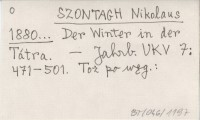 SZONTAGH Nikolaus
1880... Der Winter in der
Tátra. — Jahrb. UKV 7:
471-501. Toż po węg.:
BT/066/1197